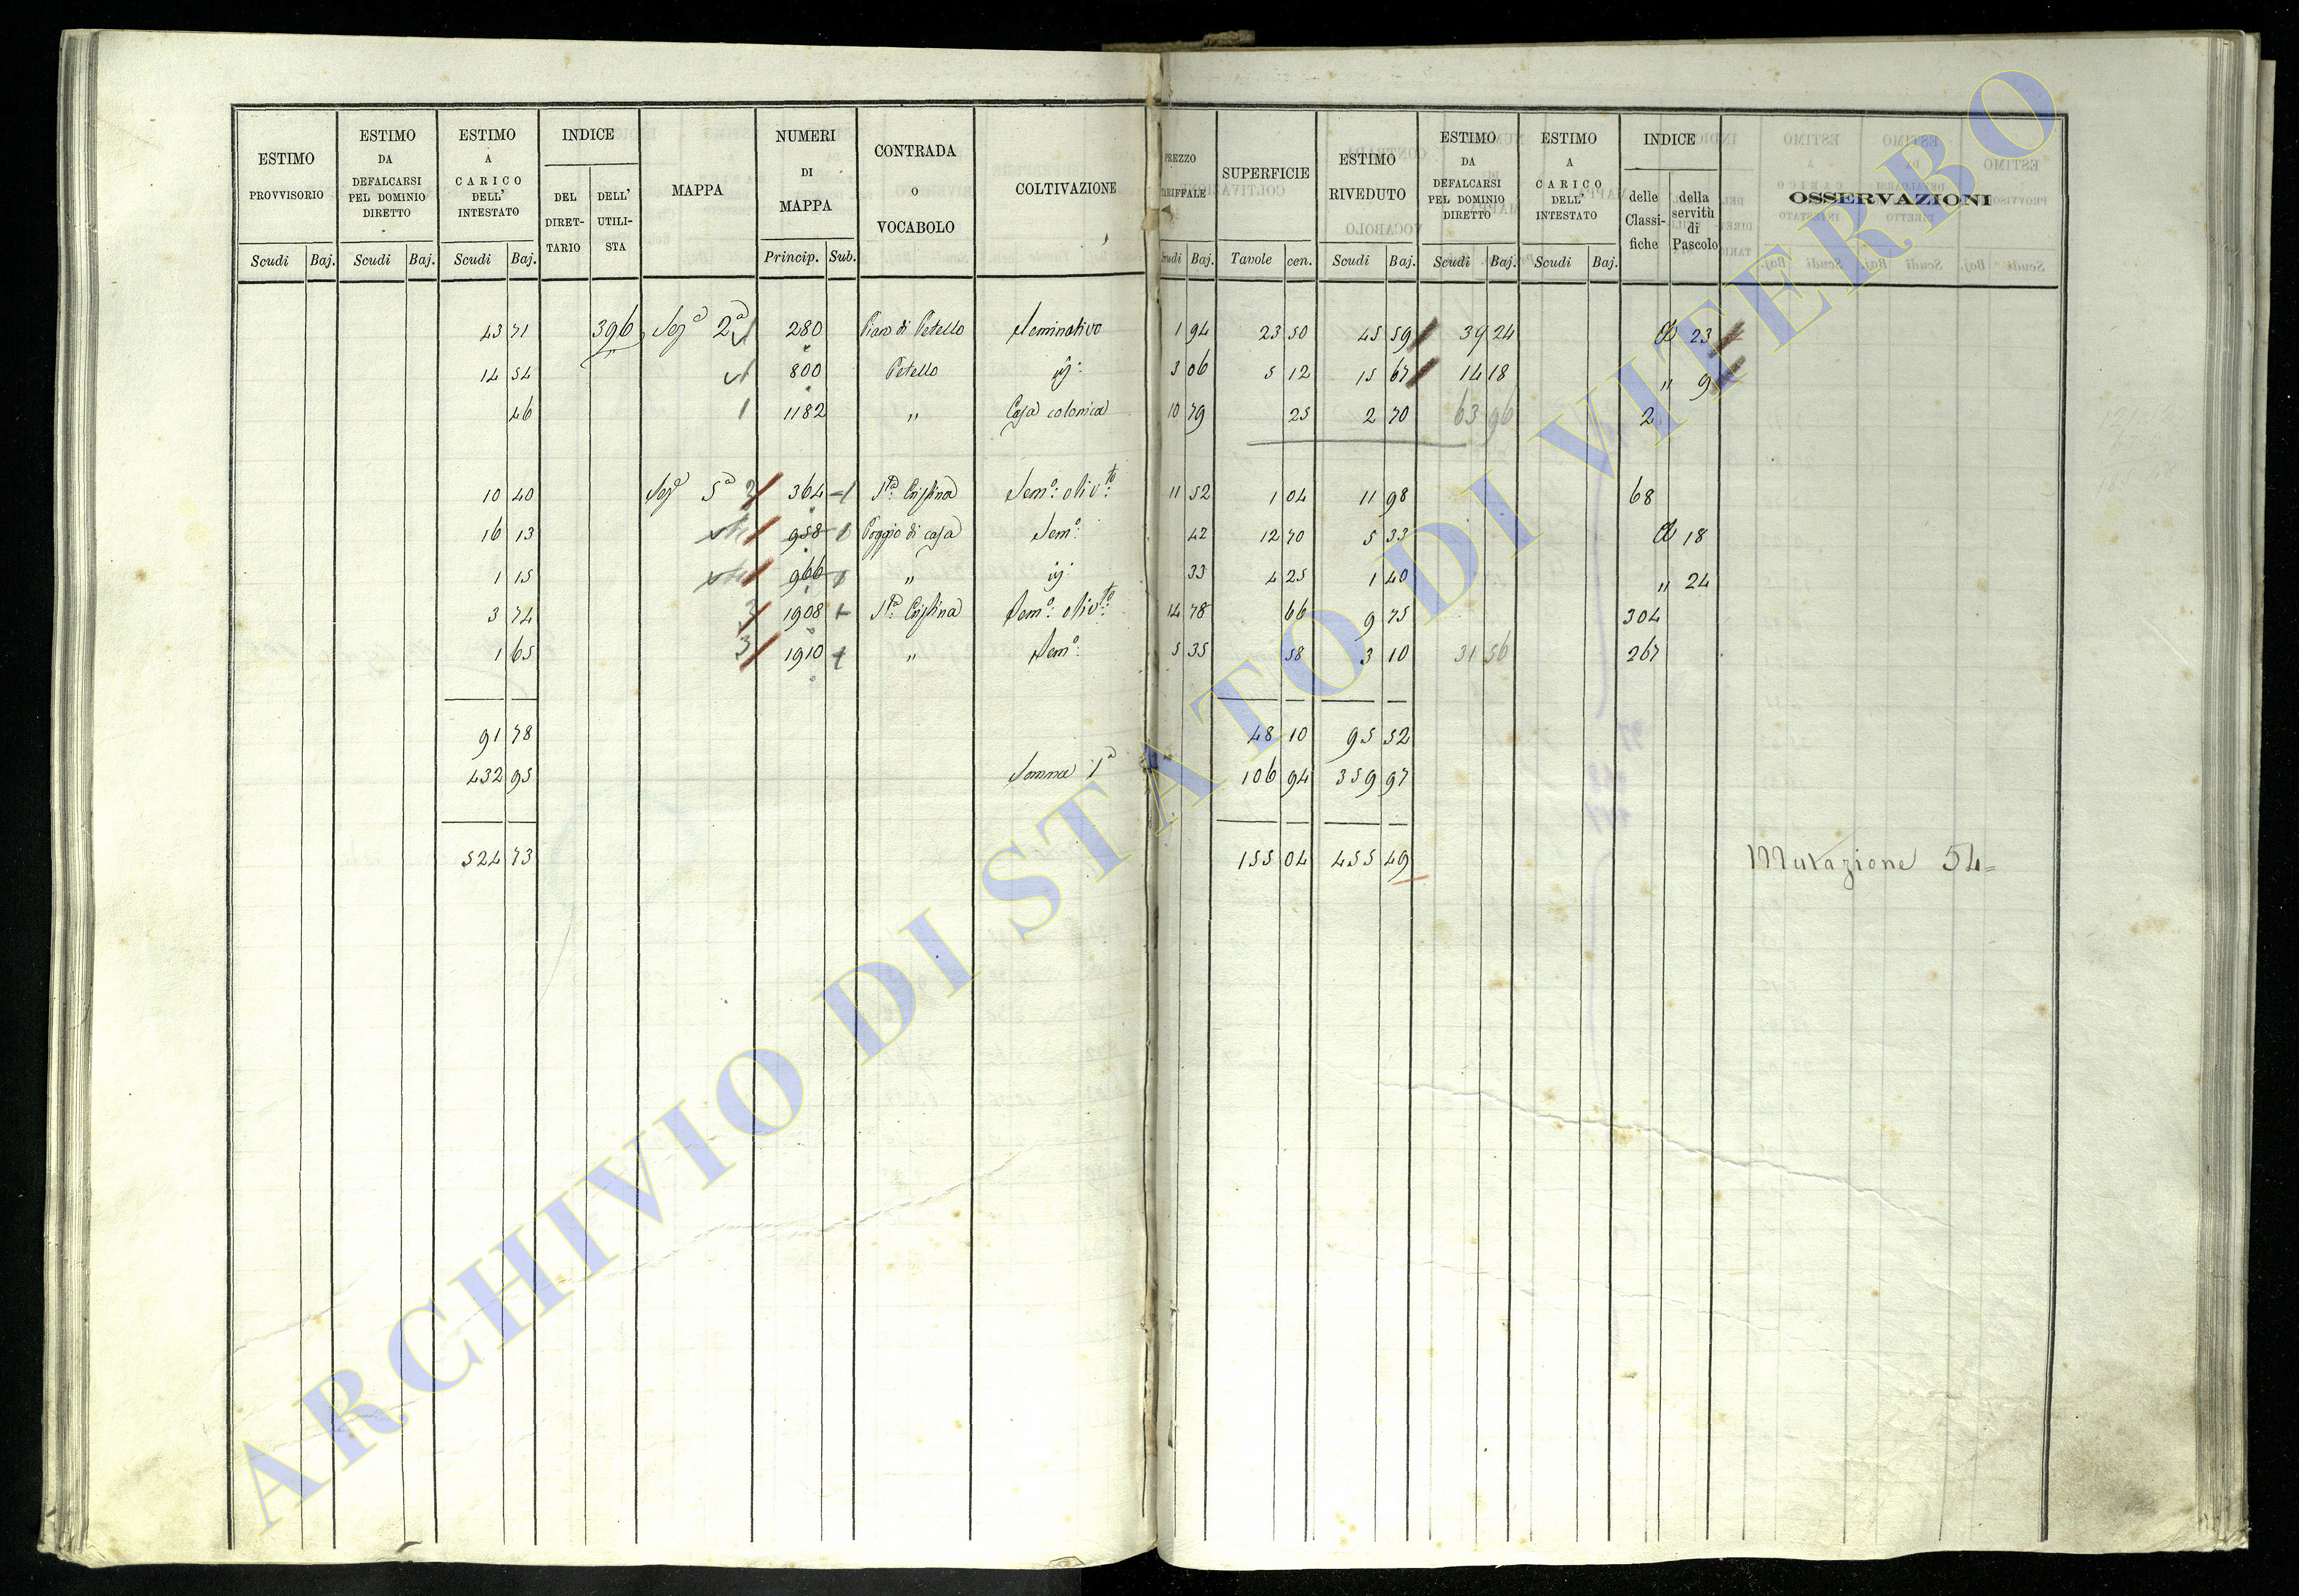 ESTIMO PROVVISORIO Scudi Baj.
ESTIMO DA DEFALCARSI PEL DOMINIO DIRETTO Scudi Baj.
ESTIMO A CARICO DELL' INTESTATO Scudi Baj.
INDICE DEL DIRET- TARIO DELL' UTILI- STA
MAPPA
NUMERI DI MAPPA Princip. Sub.
CONTRADA O VOCABOLO
COLTIVAZIONE
PREZZO Baj.
SUPERFICIE Tavole cen.
ESTIMO RIVEDUTO Scudi Baj.
ESTIMO DA DEFALCARSI PEL DOMINIO DIRETTO Scudi Baj.
ESTIMO A CARICO DELL' INTESTATO Scudi Baj.
INDICE delle Classi- fiche della servitù di Pascolo
OSSERVAZIONI
43 71 396 Sezª 2ª 280 Piano di Petello Seminativo 1 94 23 50 45 59 39 24 23
14 54 800 Petello 3 06 5 12 15 67 14 18 " 9
46 1 1182 " Casa colonica 10 79 25 2 70 63 96 2
10 40 Sezª 5ª 364 Sta. Cristina Semo. olivto. 11 52 1 04 11 98 68
16 13 958 Poggio di casa Semo. 42 12 70 5 33 18
1 15 966 " 33 4 25 1 40 " 24
3 74 3 1908 Sta. Cristina Semo. olivto. 14 78 66 9 75 304
1 65 3 1910 " Semo. 5 35 58 3 10 31 56 267
91 78 48 10 95 52
432 95 Somma 1ª 106 94 359 97
524 73 155 04 455 49 Mutazione 54=
ARCHIVIO DI STATO DI VITERBO